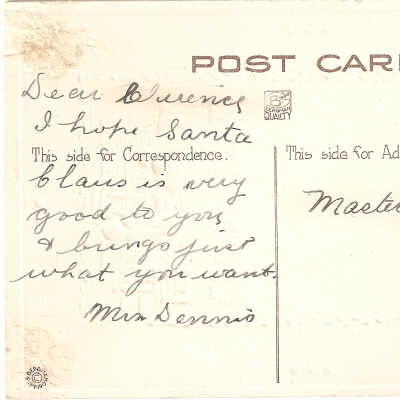 POST CAR
Dear Clarence
I hope Santa
This side for Correspondence.
Claus is very
good to you
& brings just
what you want.
Mrs Dennis
GERMAN QUALITY
This side for Ad
Master